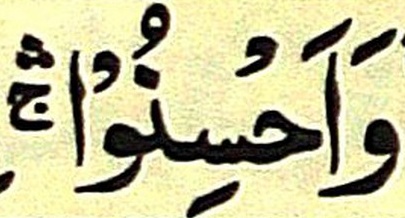 وَاَحْسِنُوْا ۚۛ